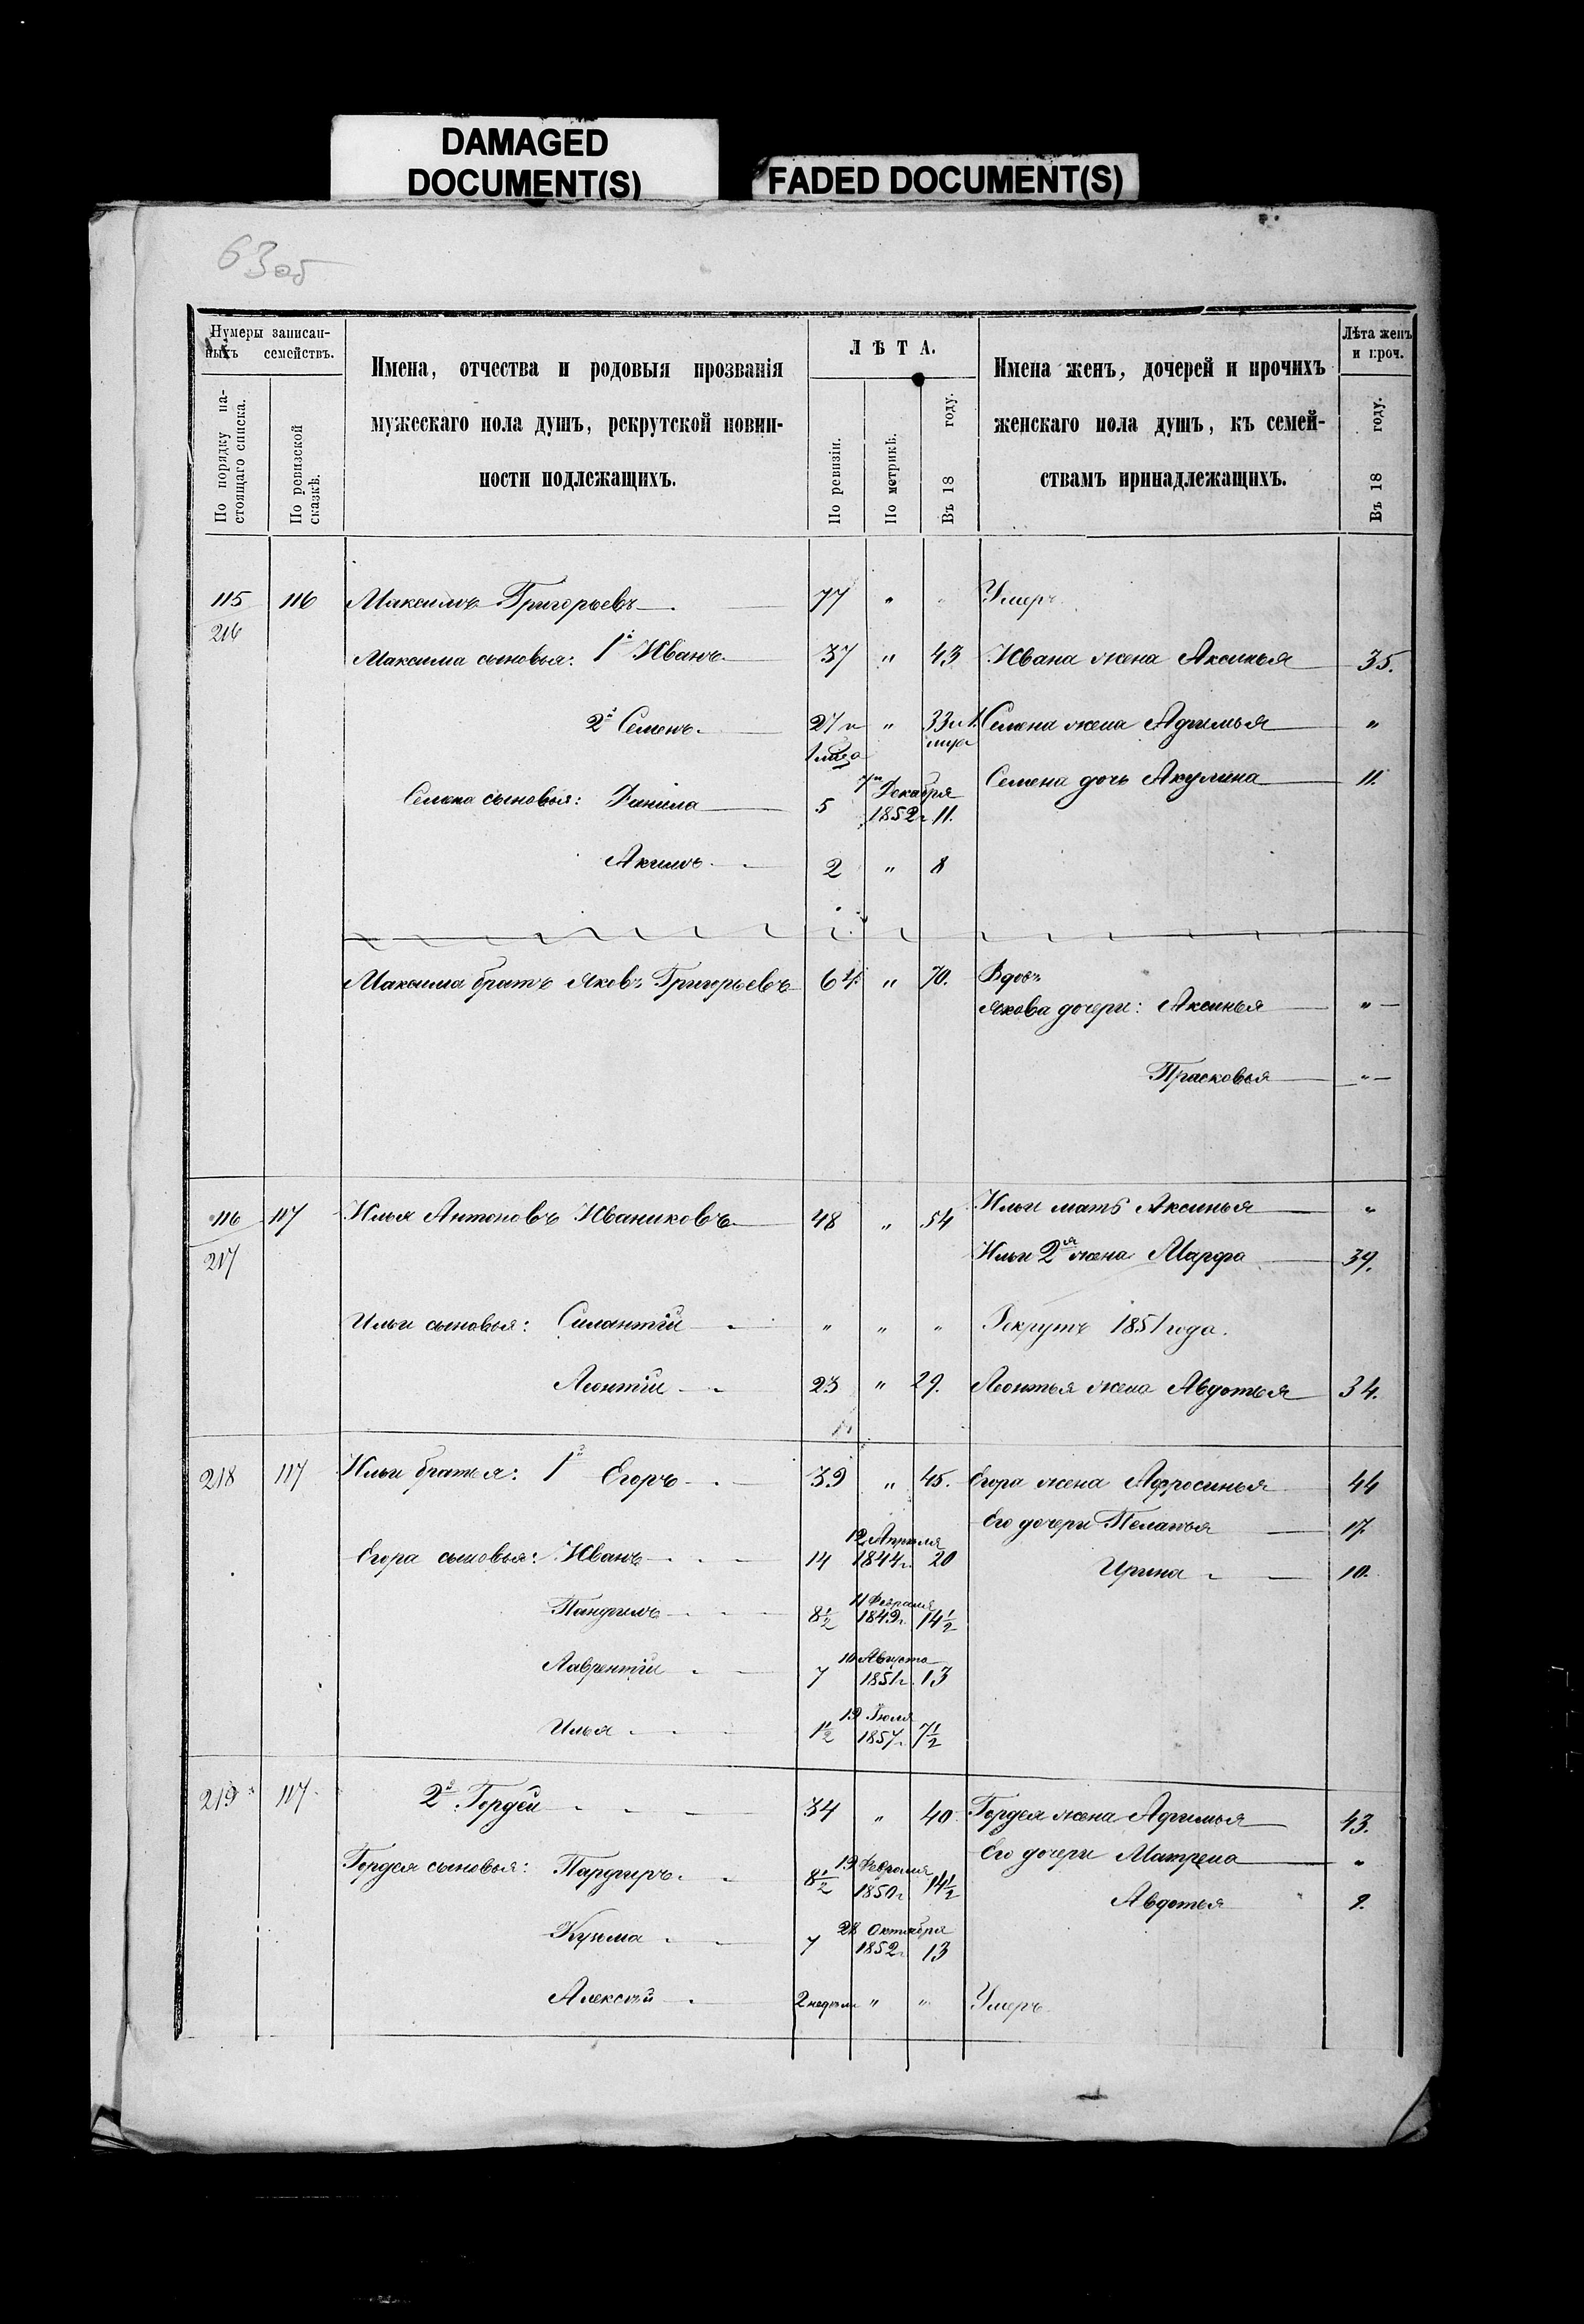 DAMAGED
DOCUMENT(S)
FADED DOCUMENT(S)
63об
Нумеры записан-
ныхъ семействъ.
По порядку на-
стоящаго списка.
По ревизской
сказкѣ.
Имена, отчества и родовыя прозванія
мужескаго пола душъ, рекрутской повин-
ности подлежащихъ.
ЛѢТА.
По ревизіи.
По метрикѣ.
Въ 18 году.
Имена женъ, дочерей и прочихъ
женскаго пола душъ, къ семей-
ствамъ принадлежащихъ.
Лѣта женъ
и проч.
Въ 18 году.
115 116 Максимъ Григорьевъ 77 " " Умеръ
216
Максима сыновья: 1й Иванъ 37 " 43 Ивана жена Аксинья 35.
2й Семенъ 27 и " 33 и 1 Семена жена Афимья "
1 мѣся
Семена дочь Акулина 11.
Семена сыновья: Данила 5 7го Декабря
1852 г. 11.
Акимъ 2 " 8
Максима братъ Яковъ Григорьевъ 64 " 70. Вдовъ
Якова дочери: Аксинья "
Прасковья "
116 117 Илья Антоновъ Иваниковъ 48 " 54 Ильи мать Аксинья "
217 Ильи 2я жена Марфа 39.
Ильи сыновья: Силантій " " " Рекрутъ 1851 года.
Леонтій 23 " 29. Леонтья жена Авдотья 34.
218 117 Ильи братья: 1й Егоръ 39 " 45. Егора жена Афросинья 44
Его дочери Пелагья 17.
Егора сыновья: Иванъ 14 12 Апрѣля
1844 г. 20 Ирина 10.
Панфилъ 8½ 11 Февраля
1849 г. 14½
Лаврентій 7 10 Августа
1851 г. 13
Илья 1½ 19 Іюля
1857 г. 7½
219 117 2й Гордѣй 34 " 40 Гордея жена Афимья 43.
Его дочери Матрена "
Гордея сыновья: Парфиръ 8½ 19 Февраля
1850 г. 14½ Авдотья 9.
Кузьма 7 28 Октября
1852 г. 13
Алексѣй 2 недѣли " " Умеръ